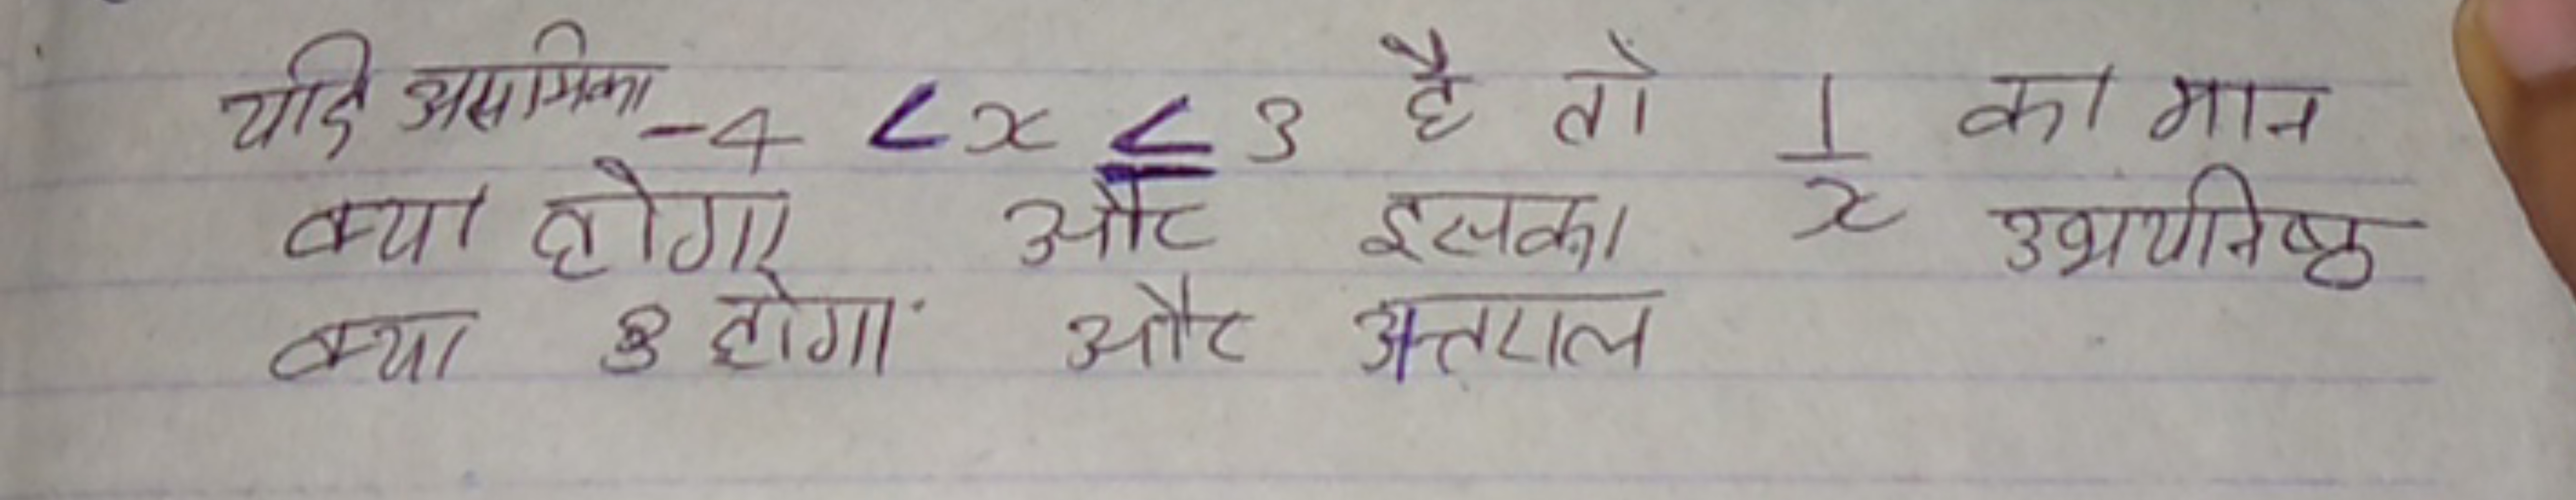 यदि असमिका -4 < x ≤ 3 है तो 1/x का मान
क्या होगा और इसका उभयनिष्ठ
क्या होगा और अन्तराल